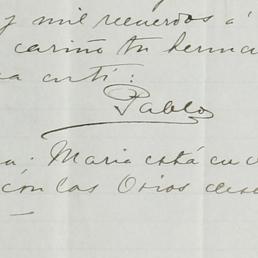 y mil recuerdos á
cariño tu herma
Pablo
Maria está en
con las Osios des